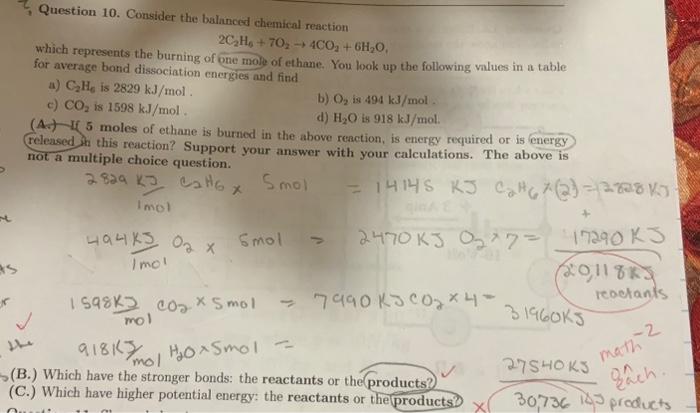 Question 10. Consider the balanced chemical reaction
2C₂H₆ + 7O₂ → 4CO₂ + 6H₂O,
which represents the burning of one mole of ethane. You look up the following values in a table
for average bond dissociation energies and find
a) C₂H₆ is 2829 kJ/mol .
b) O₂ is 494 kJ/mol .
c) CO₂ is 1598 kJ/mol .
d) H₂O is 918 kJ/mol.
(A.) If 5 moles of ethane is burned in the above reaction, is energy required or is energy
released in this reaction? Support your answer with your calculations. The above is
not a multiple choice question.
2829 KJ C₂H₆ x 5mol = 14145 KJ C₂H₆ x (2) = 2828 KJ
1mol
+
494 KJ O₂ x 5mol = 2470 KJ O₂ x 7 = 17290 KJ
1mol
20,118 KJ
reactants
1598KJ CO₂ x 5mol = 7990 KJ CO₂ x 4 =
mol
31960KJ
918KJ/mol H₂O x 5mol =
27540 KJ
math -2
each.
(B.) Which have the stronger bonds: the reactants or the products?
(C.) Which have higher potential energy: the reactants or the products?
30736 KJ products